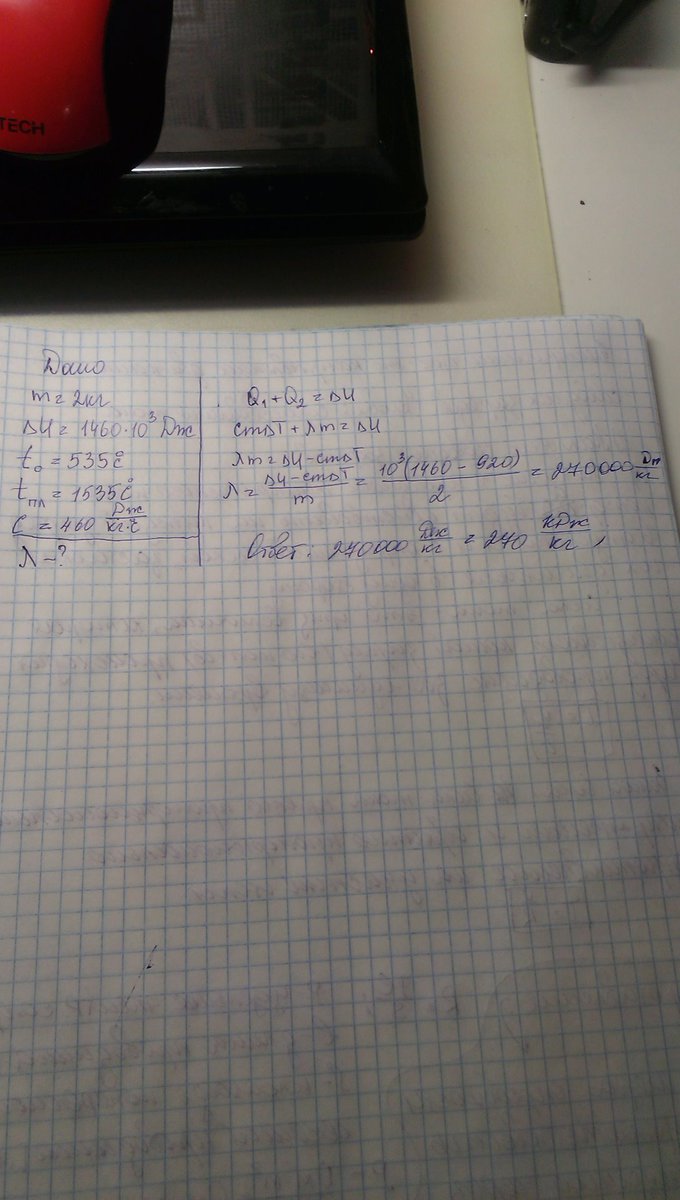 TECH
Дано
m = 2кг
ΔU = 1460·10³ Дж
t₀ = 535°C
tпл = 1535°C
C = 460 Дж/кг·°C
λ - ?
Q₁ + Q₂ = ΔU
cmΔT + λm = ΔU
λm = ΔU - cmΔT
λ = (ΔU - cmΔT)/m = 10³(1460 - 920)/2 = 270000 Дж/кг
Ответ: 270000 Дж/кг = 270 кДж/кг,